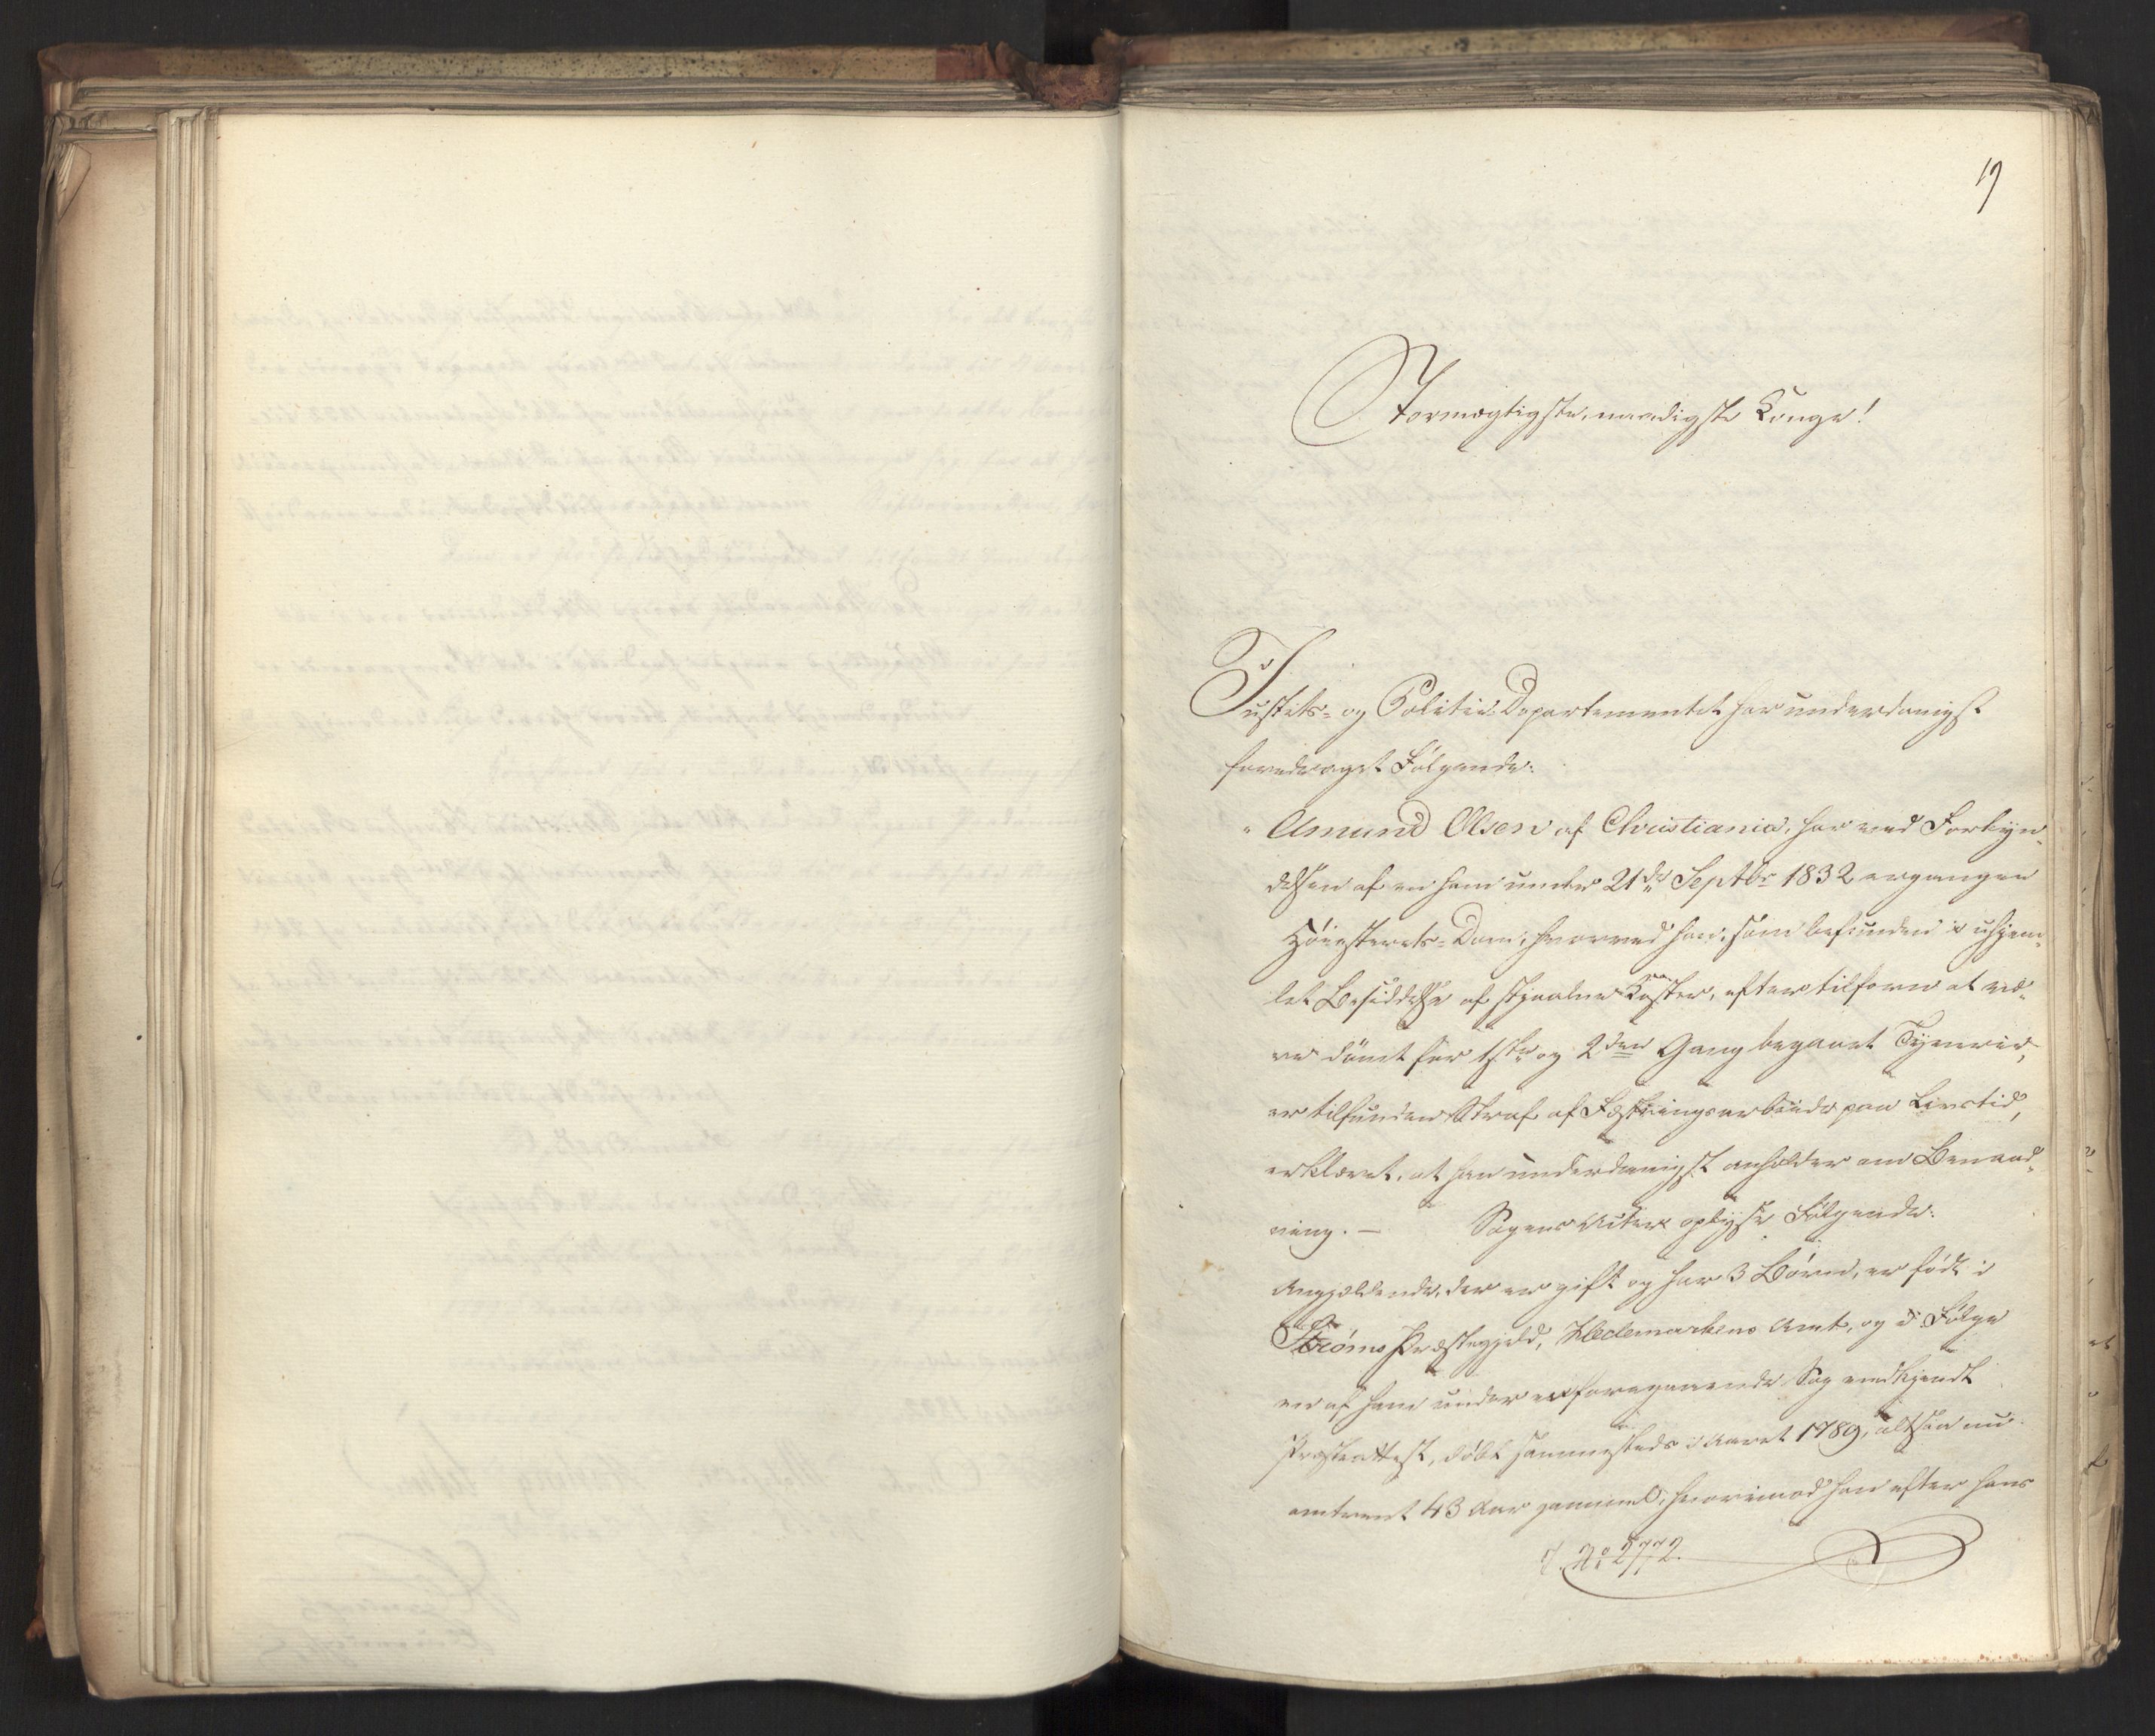 19
Stormægtigste, naadigste Konge!
Justits- og Politie-Departementet har underdanigst
foredraget Følgende:
"Amund Olsen af Christiania, har ved Forkyn-
delsen af en ham under 21de Septbr 1832 overgangen
Høiesterets-Dom, hvorved han, som befunden i uhjem-
let Besiddelse af stjaalne Koster, efter tilforn at væ-
re dømt for 1ste og 2den Gang begaaet Tyverie,
er tilfunden Straf af Fæstningsarbeide paa Livstid,
erklæret, at han underdanigst anholder om Benaad-
ning. — Sagens Acter oplyse Følgende:
Angjældende, der er gift og har 3 Børn, er født i
Strøms Præstegjeld, Hedemarkens Amt, og i Følge
en af ham under en foregaaende Sag vedkjendt
Præsteattest, døbt sammesteds i Aaret 1789, altsaa nu
omtrent 43 Aar gammel, hvorimod han efter hans
J. No 2772.